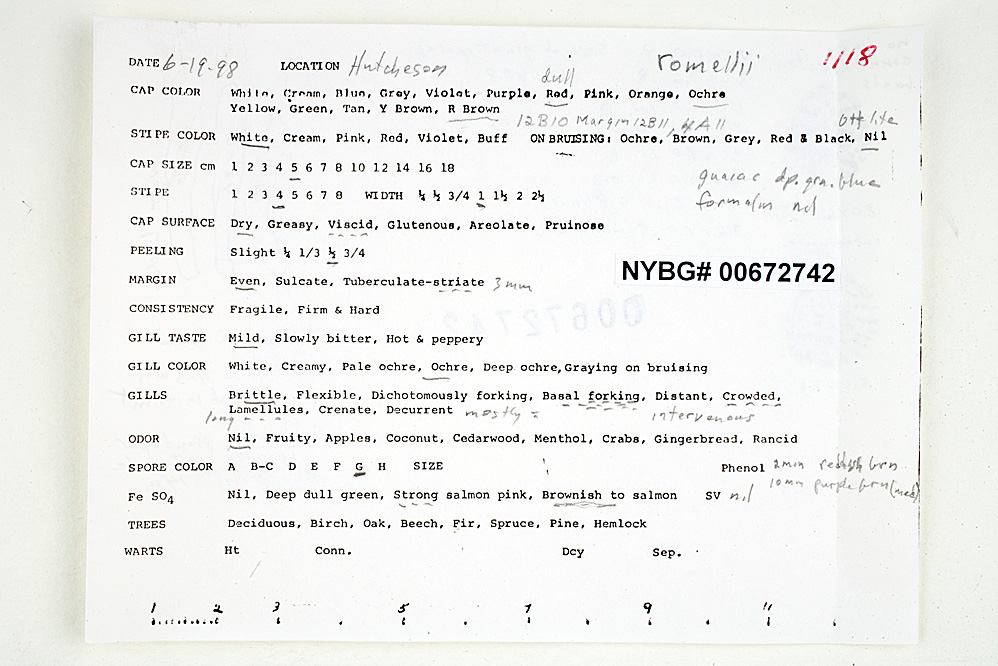 DATE 6-19-98 LOCATION Hutcheson romellii 1118
dull
CAP COLOR White, Cream, Blue, Grey, Violet, Purple, Red, Pink, Orange, Ochre
Yellow, Green, Tan, Y Brown, R Brown
12B10 Margin 12B11, 4A11
off lite
STIPE COLOR White, Cream, Pink, Red, Violet, Buff ON BRUISING: Ochre, Brown, Grey, Red & Black, Nil
CAP SIZE cm 1 2 3 4 5 6 7 8 10 12 14 16 18
guaiac dp. grn. blue
STIPE 1 2 3 4 5 6 7 8 WIDTH ¼ ½ 3/4 1 1½ 2 2½
formalin nil
CAP SURFACE Dry, Greasy, Viscid, Glutenous, Areolate, Pruinose
PEELING Slight ¼ 1/3 ½ 3/4
NYBG# 00672742
MARGIN Even, Sulcate, Tuberculate-striate 3 mm
CONSISTENCY Fragile, Firm & Hard
GILL TASTE Mild, Slowly bitter, Hot & peppery
GILL COLOR White, Creamy, Pale ochre, Ochre, Deep ochre, Graying on bruising
GILLS Brittle, Flexible, Dichotomously forking, Basal forking, Distant, Crowded,
long Lamellules, Crenate, Decurrent mostly = intervenous
ODOR Nil, Fruity, Apples, Coconut, Cedarwood, Menthol, Crabs, Gingerbread, Rancid
SPORE COLOR A B-C D E F G H SIZE Phenol 2min reddish brn
10 min purple brn (med)
Fe SO4 Nil, Deep dull green, Strong salmon pink, Brownish to salmon SV nil
TREES Deciduous, Birch, Oak, Beech, Fir, Spruce, Pine, Hemlock
WARTS Ht Conn. Dcy Sep.
1 2 3 5 7 9 11